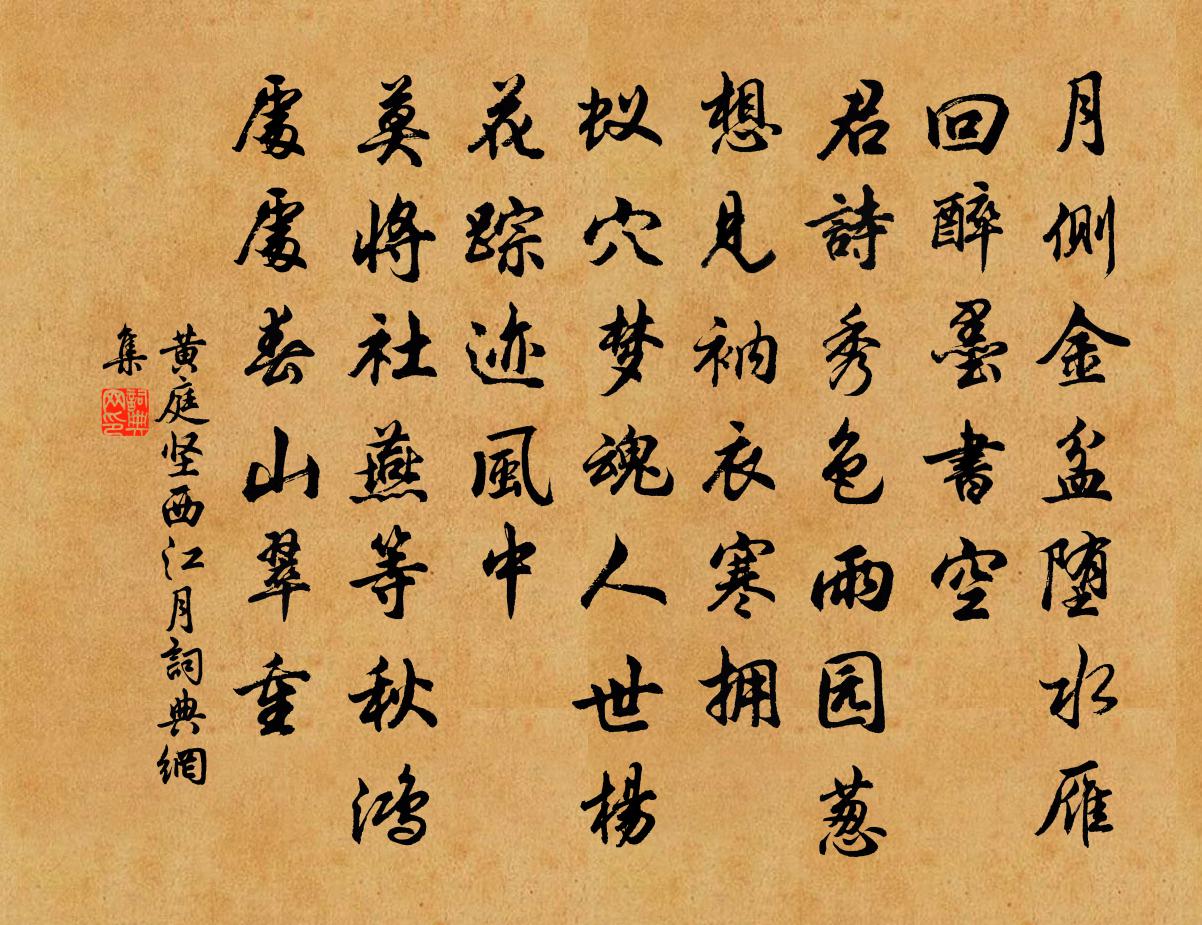 月側金盆堕水雁
回醉墨書空
君詩秀色雨园葱
想見衲衣寒拥
蚁穴梦魂人世楊
花踪迹風中
莫將社燕等秋鸿
處處春山翠重
黄庭坚西江月詞典網
集
詞典
网印